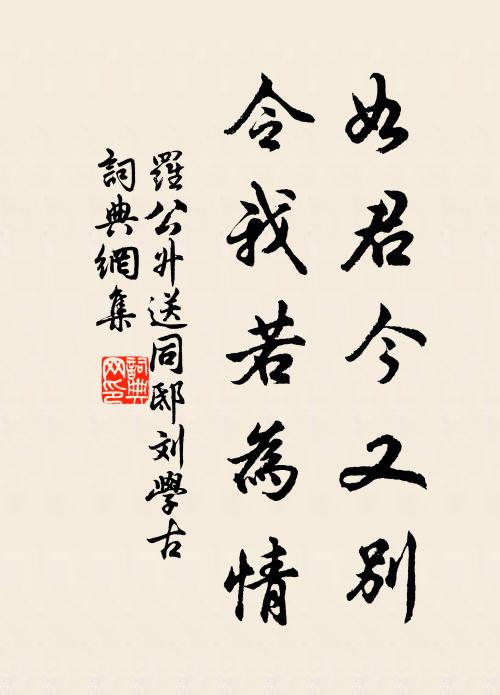 如君今又別
令我若為情
羅公升送同邸刘學古
詞典網集
詞典
网印